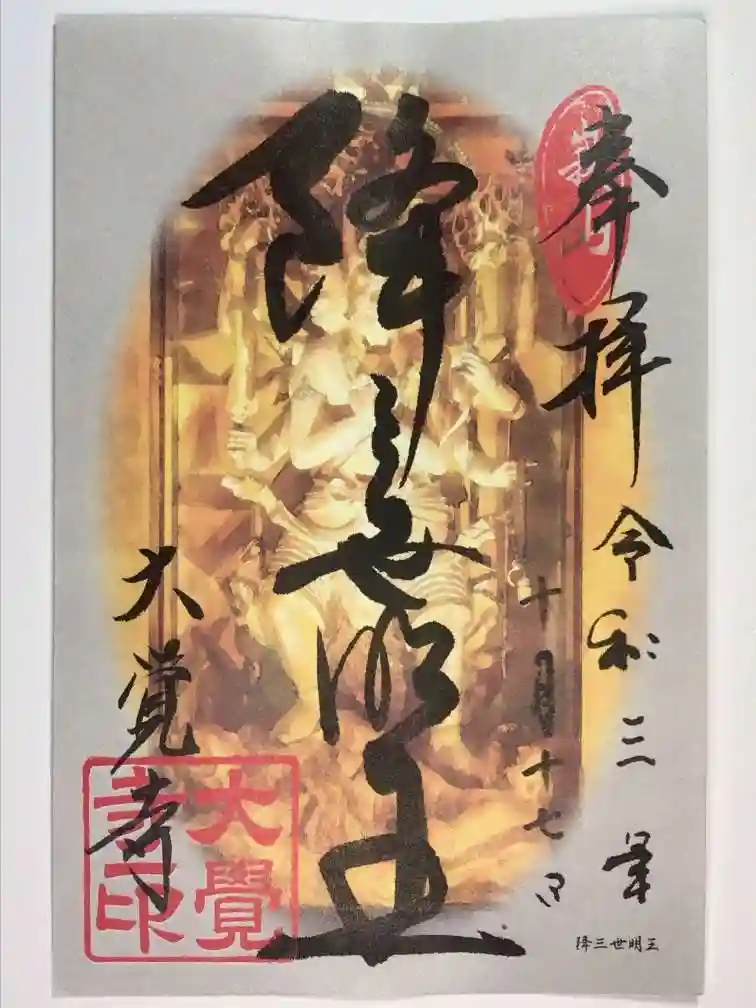 奉拝
令和三年
十月十七日
降三世明王
大覺寺
大覺寺印
降三世明王